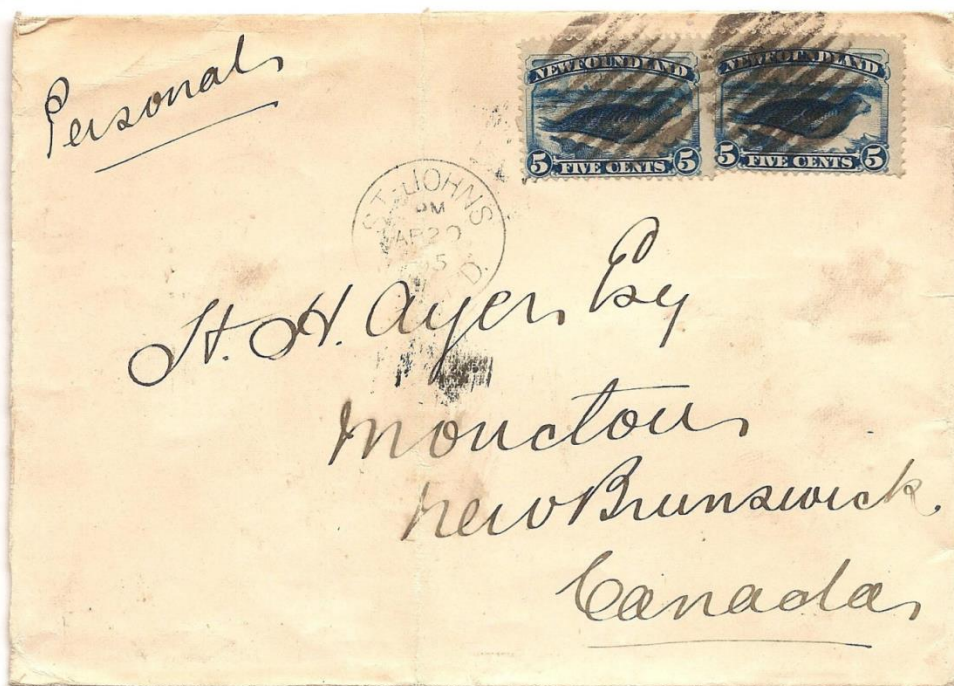 Personal
NEWFOUNDLAND
5 FIVE CENTS 5
NEWFOUNDLAND
5 FIVE CENTS 5
ST. JOHNS
PM
AP 20
5
D.
H. Ayer, Esq
Moncton
New Brunswick.
Canada